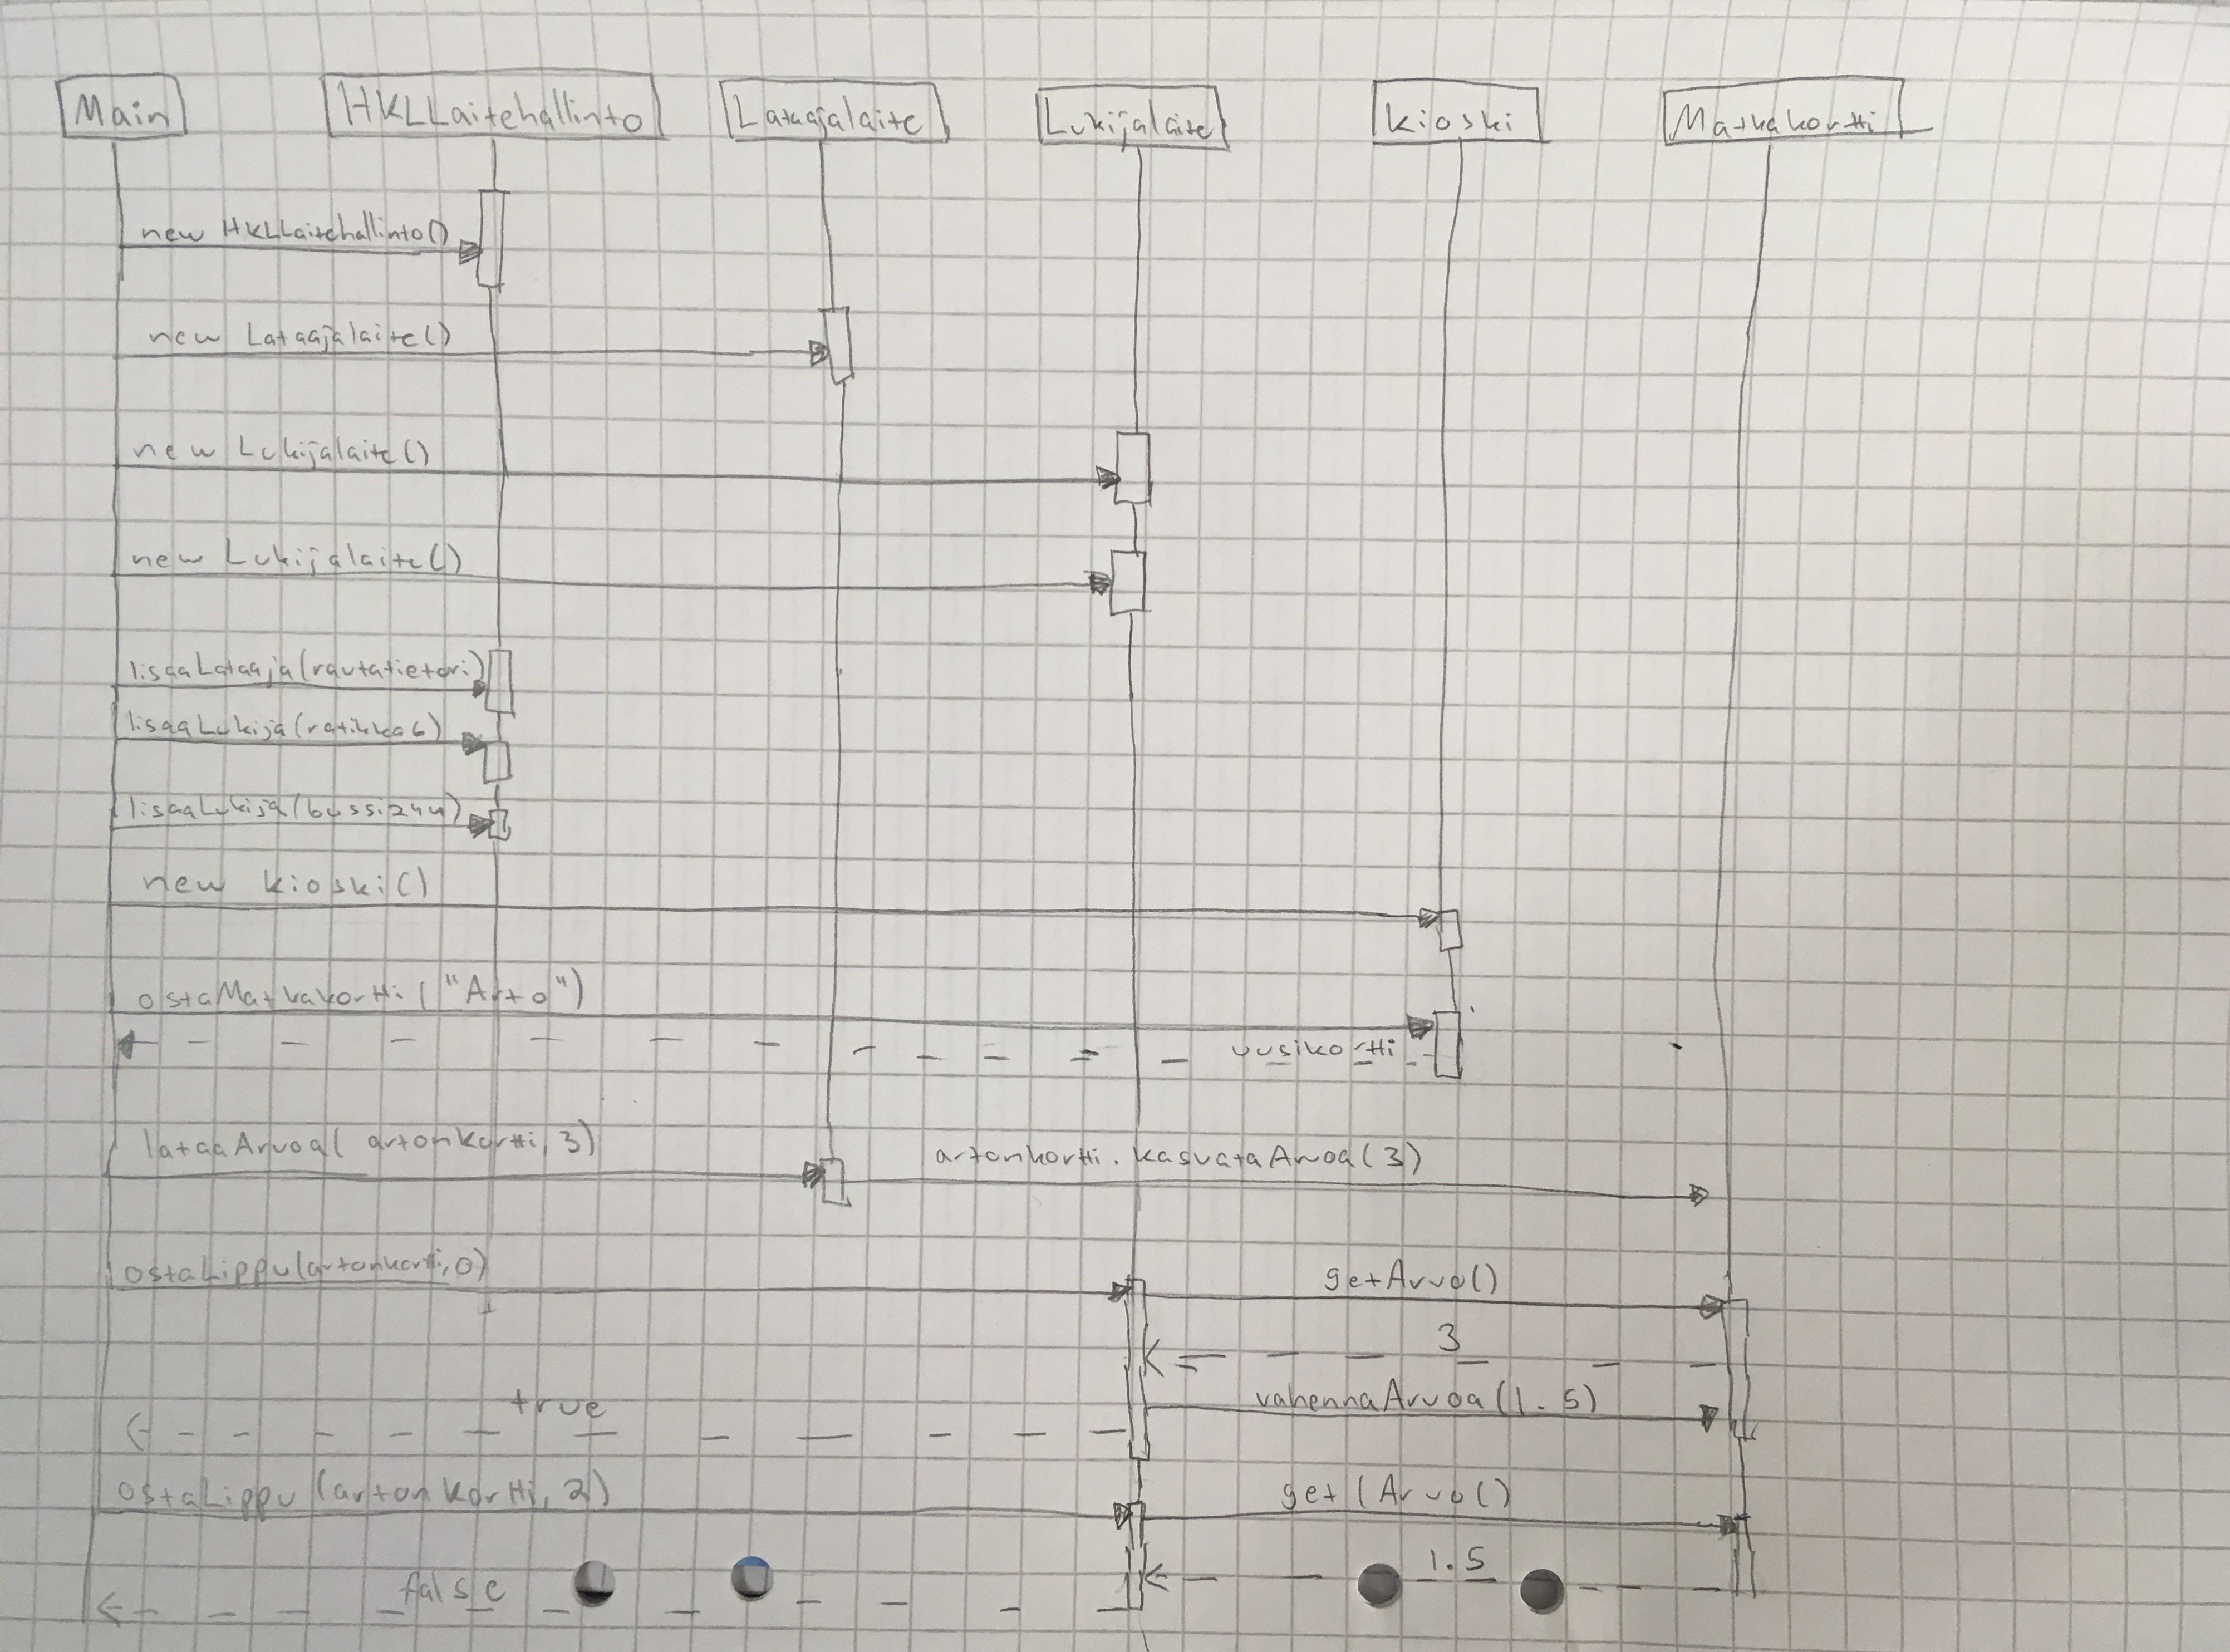 Main HKLLaitehallinto Lataajalaite Lukijalaite Kioski Matkakortti
new HKLLaitehallinto()
new Lataajalaite()
new Lukijalaite()
new Lukijalaite()
lisaaLataaja(rautatietori)
lisaaLukija(ratikka6)
lisaaLukija(bussi244)
new Kioski()
ostaMatkakortti("Arto")
uusikortti
lataaArvoa(artonKortti, 3) artonkortti.kasvataArvoa(3)
ostaLippu(artonkortti, 0) getArvo()
3
true vahennaArvoa(1.5)
ostaLippu(artonKortti, 2) get(Arvo()
false 1.5